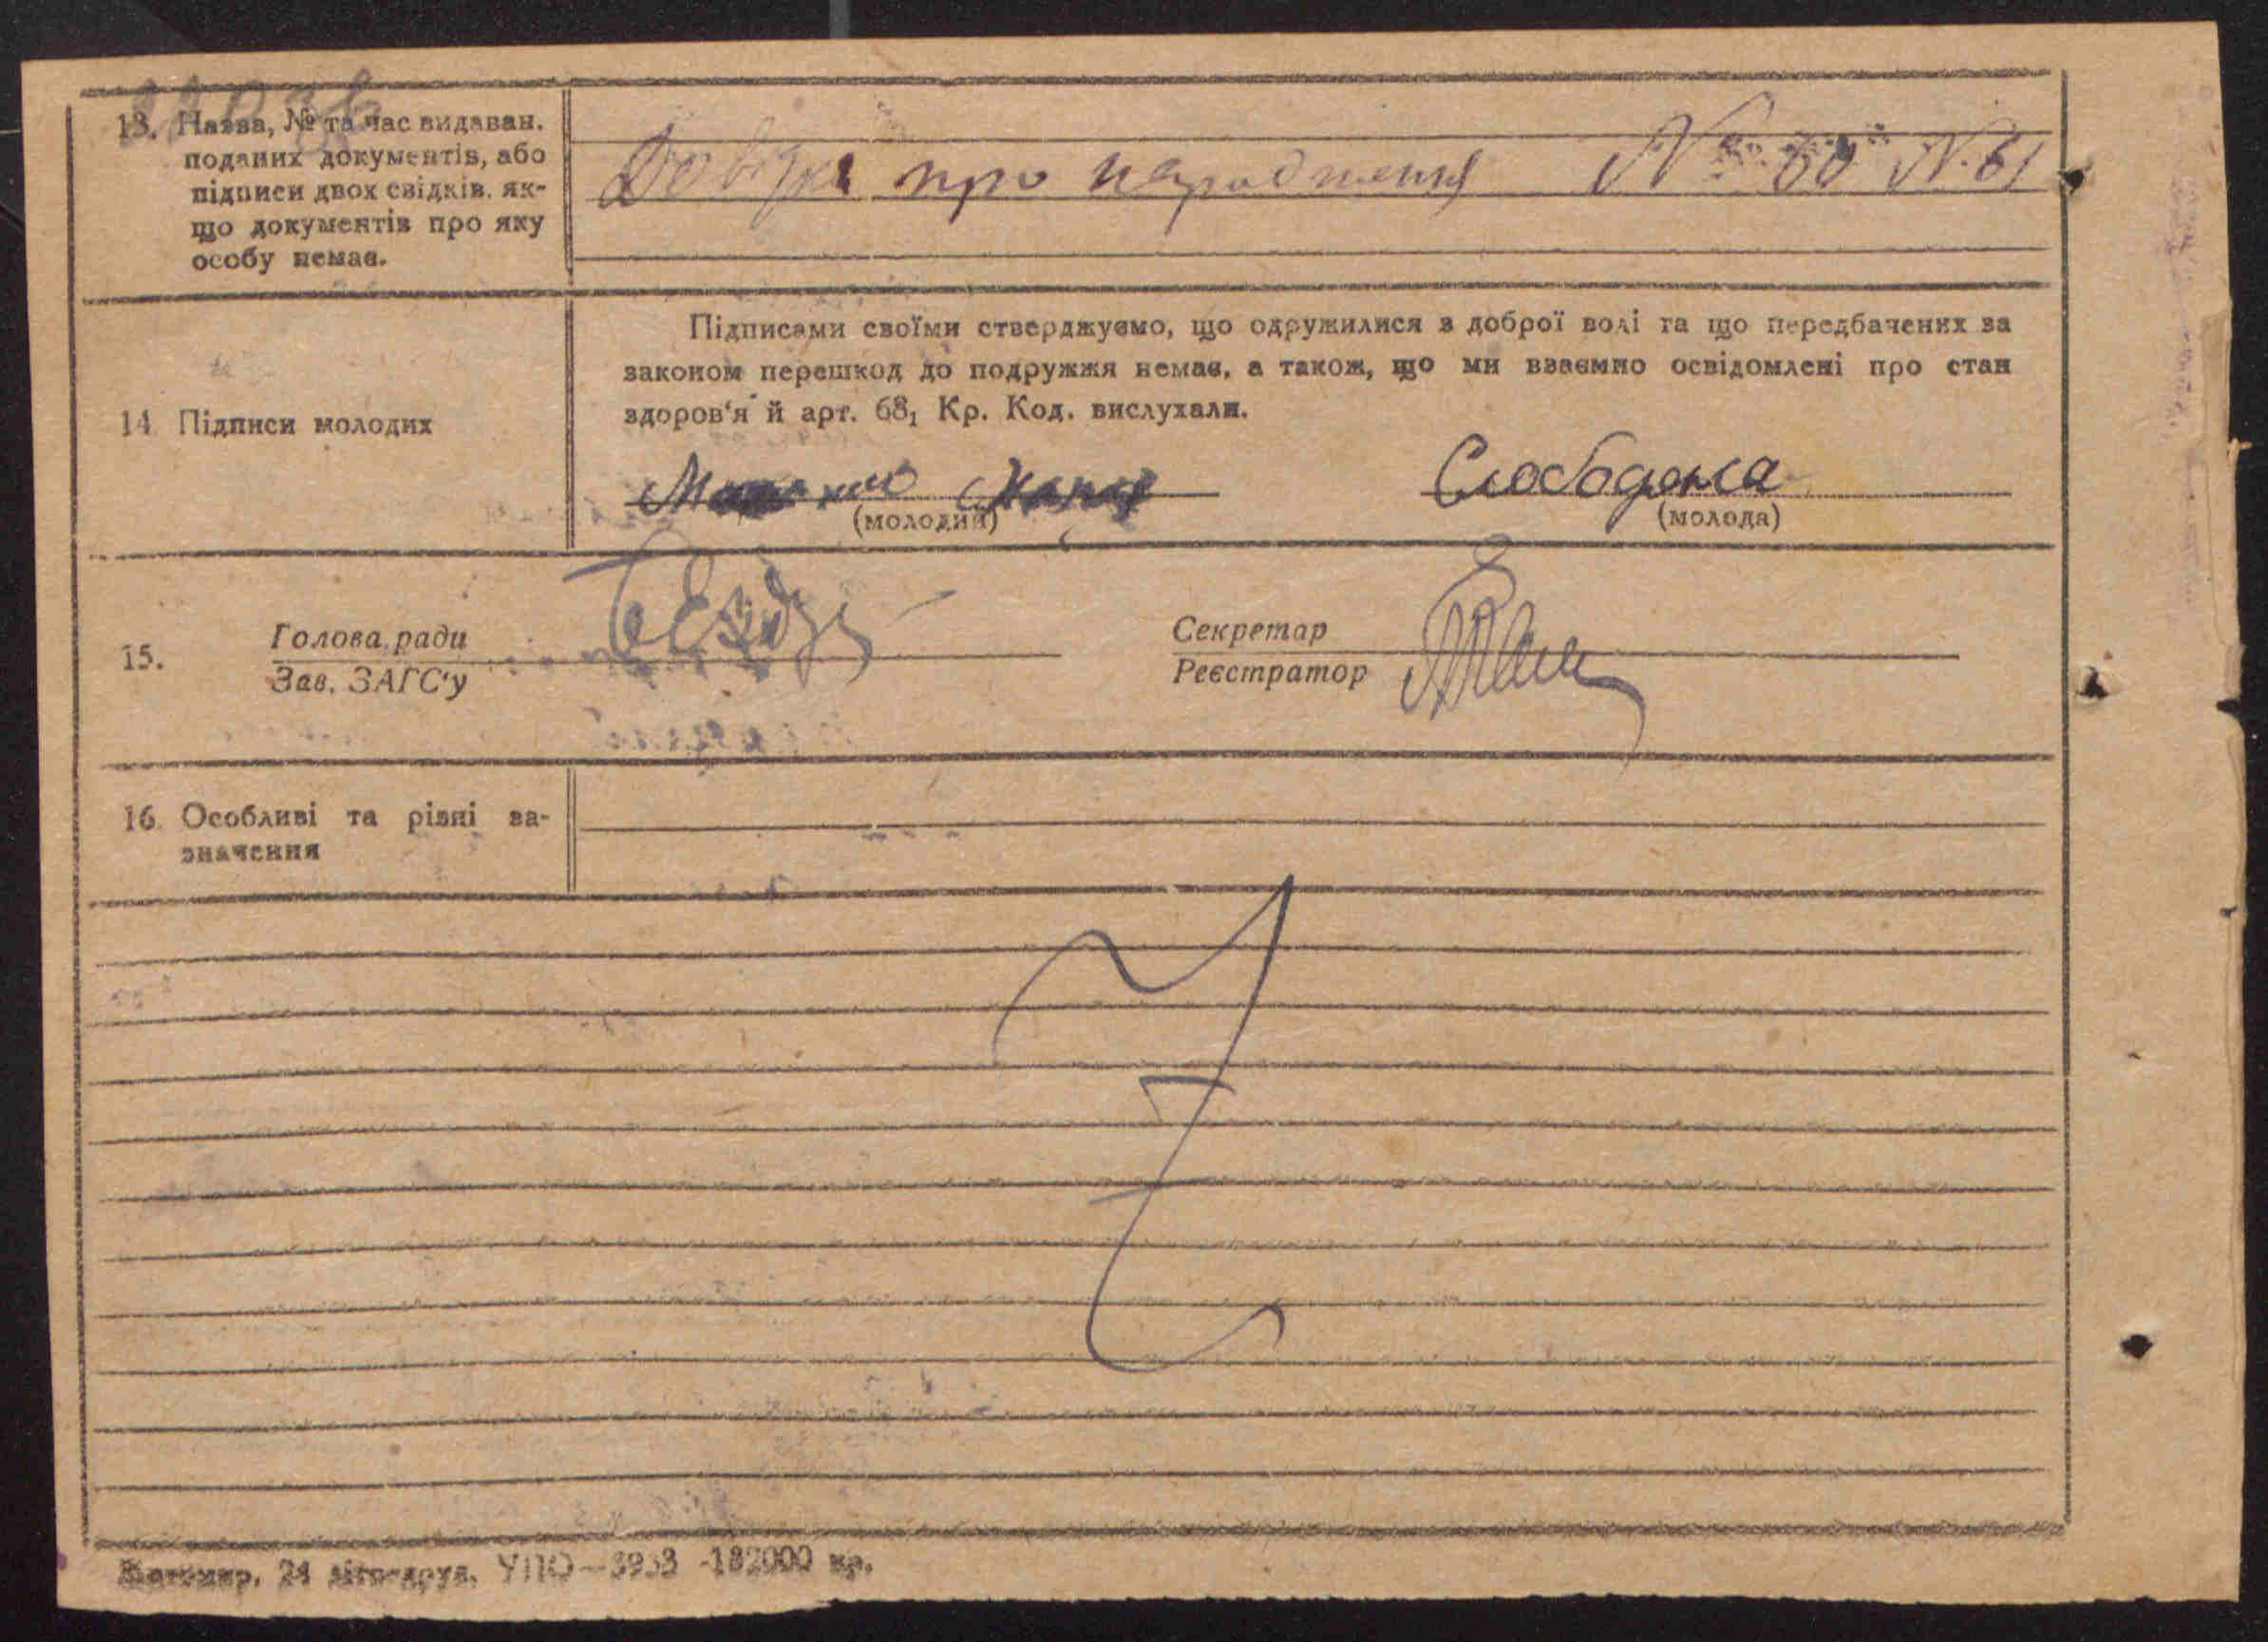 13. Назва, № та час видаван.
поданих документів, або
підписи двох свідків, як-
що документів про яку
особу немає.
Довідка про народження № 60 N. 61
Підписами своїми стверджуємо, що одружилися з доброї волі та що передбачених за
законом перешкод до подружжя немає, а також, що ми взаємно освідомлені про стан
здоров'я й арт. 68₁ Кр. Код. вислухали.
14 Підписи молодих
Слободенка
(молодий) (молода)
15. Голова ради Секретар
Зав. ЗАГС'у Реєстратор
16. Особливі та різні за-
значення
Житомир, 24 літо-друк. УПО—3933 -182000 пр.